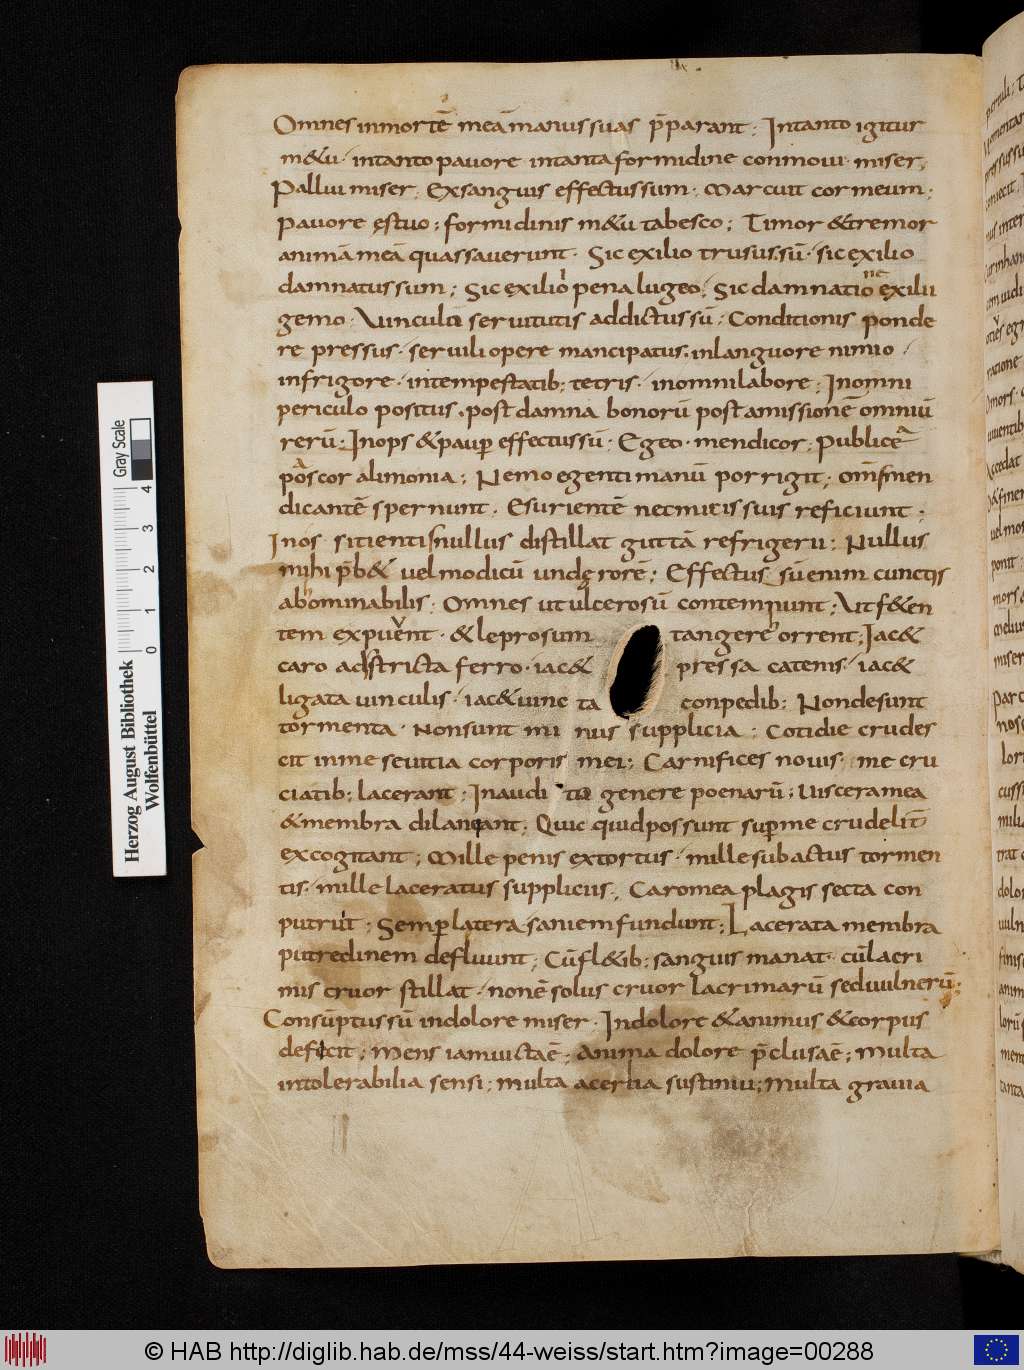 Omnes in mortē meā manus suas p̄parant; In tanto igitur
m&u· in tanto pavore in tanta formidine conmoui· miser;
Pallui miser; Exsanguis effectus sum· Marcuit cor meum;
pauore ęstuo; formidinis m&u tabesco; Timor & tremor
animā meā quassauerunt· Sic exilio trusus sū· sic exilio
damnatus sum; Sic exilio pena lugeo; Sic damnatione exilii
gemo· Vinculis seruitutis addictus sū; Conditionis ponde
re pressus· seruili opere mancipatus· in languore nimio·
in frigore· in tempestatib; tetris· in omni labore; In omni
periculo positus· post damna bonorū post amissionē omniū
rerū; Inops & paup effectus sū· Egeo· mendicor; Publicę
poscor alimonia; Nemo egenti manū porrigit; om̄s men
dicantē spernunt· Esurientē nec micis suis reficiunt;
Inos sitientis nullus distillat guttā refrigerii; Nullus
mihi p̄b& uel modicū undę rorē; Effectus sū enim cunctis
abhominabilis; Omnes ut ulcerosū contempnunt; Ut f&en
tem expuunt· & leprosum tangere horrent; Iac&
caro adstricta ferro· iac& pressa catenis· iac&
ligata uinculis· iac& uinc ta conpedib; Non desunt
tormenta· Non sunt mi nus supplicia; Cotidie crudes
cit in me seuitia corporis mei; Carnifices nouis· me cru
ciatib; lacerant; Inaudi to genere poenarū; Viscera mea
& membra dilaneant; Quic quid possunt sup me crudelit̄
excogitant; Mille penis extortus· mille subactus tormen
tis· mille laceratus suppliciis; Caro mea plagis secta con
putruit; Semp latera saniem fundunt; Lacerata membra
putredinem defluunt; Cū fl&ib; sanguis manat· cū lacri
mis cruor stillat· non ē solus cruor lacrimarū sed uulnerū;
Consūptus sū in dolore miser· In dolore & animus & corpus
defecit; Mens iam uicta ē; Anima dolore p̄clusa ē; Multa
intolerabilia sensi; multa acerba sustinui; Multa grauia
Gray Scale
4 3 2 1 0
Herzog August Bibliothek
Wolfenbüttel
© HAB http://diglib.hab.de/mss/44-weiss/start.htm?image=00288